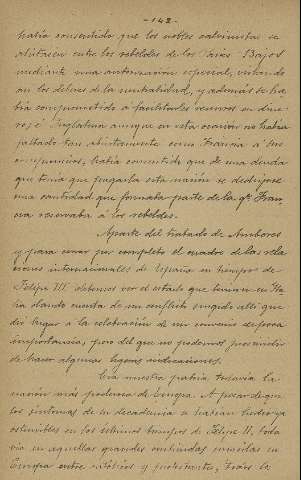 - 142 -
había consentido que los nobles calvinistas se
alistasen entre los rebeldes de los Países Bajos
mediante una autorización especial, violando
así los deberes de la neutralidad, y además se ha
bía comprometido a facilitarles recursos en dine
ro; e Inglaterra aunque en esta ocasión no había
faltado tan abiertamente como Francia a sus
compromisos, había consentido que de una deuda
que tenía que pagarla esta nación se dedujese
una cantidad que formaba parte de la q^e. Fran
cia reservaba a los rebeldes.
Aparte del tratado de Amberes
y para cerrar por completo el cuadro de las rela
ciones internacionales de España en tiempo de
Felipe III debemos ver el estado que tenían en Ita
lia dando cuenta de un conflicto surgido allí que
dio lugar a la celebración de un convenio de poca
importancia, pero del que no podemos prescindir
de hacer algunas ligeras indicaciones.
Era nuestra patria todavía la
nación más poderosa de Europa. A pesar de que
los síntomas de su decadencia se habían hecho ya
ostensibles en los últimos tiempos de Felipe II, toda
vía en aquellas grandes contiendas surgidas en
Europa entre católicos y protestantes,